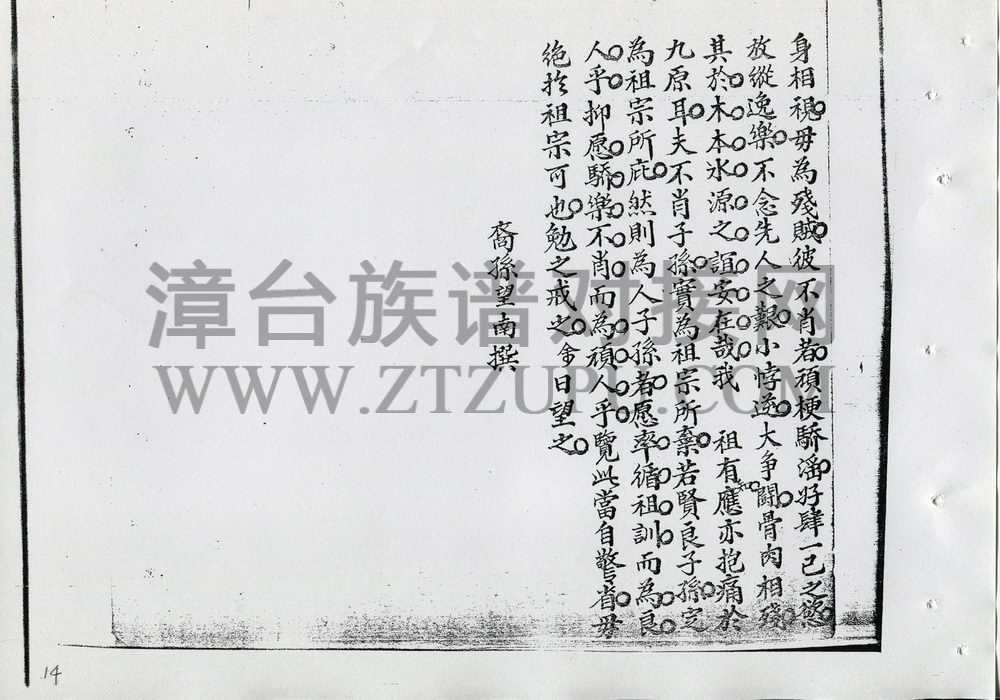 身相視毋為殘賊彼不肖者頑梗驕淫好肆一己之慾
放縱逸樂不念先人之艱小悖逆大爭鬪骨肉相殘
其於木本水源之誼安在哉我 祖有知應亦抱痛於
九原耳夫不肖子孫實為祖宗所棄若賢良子孫定
為祖宗所庇然則為人子孫者愿率循祖訓而為良
人乎抑愿驕樂不肖而為頑人乎覽此當自警省毋
絶於祖宗可也勉之戒之余日望之
裔孫望南撰
漳台族谱对接网
WWW.ZTZUPU.COM
14